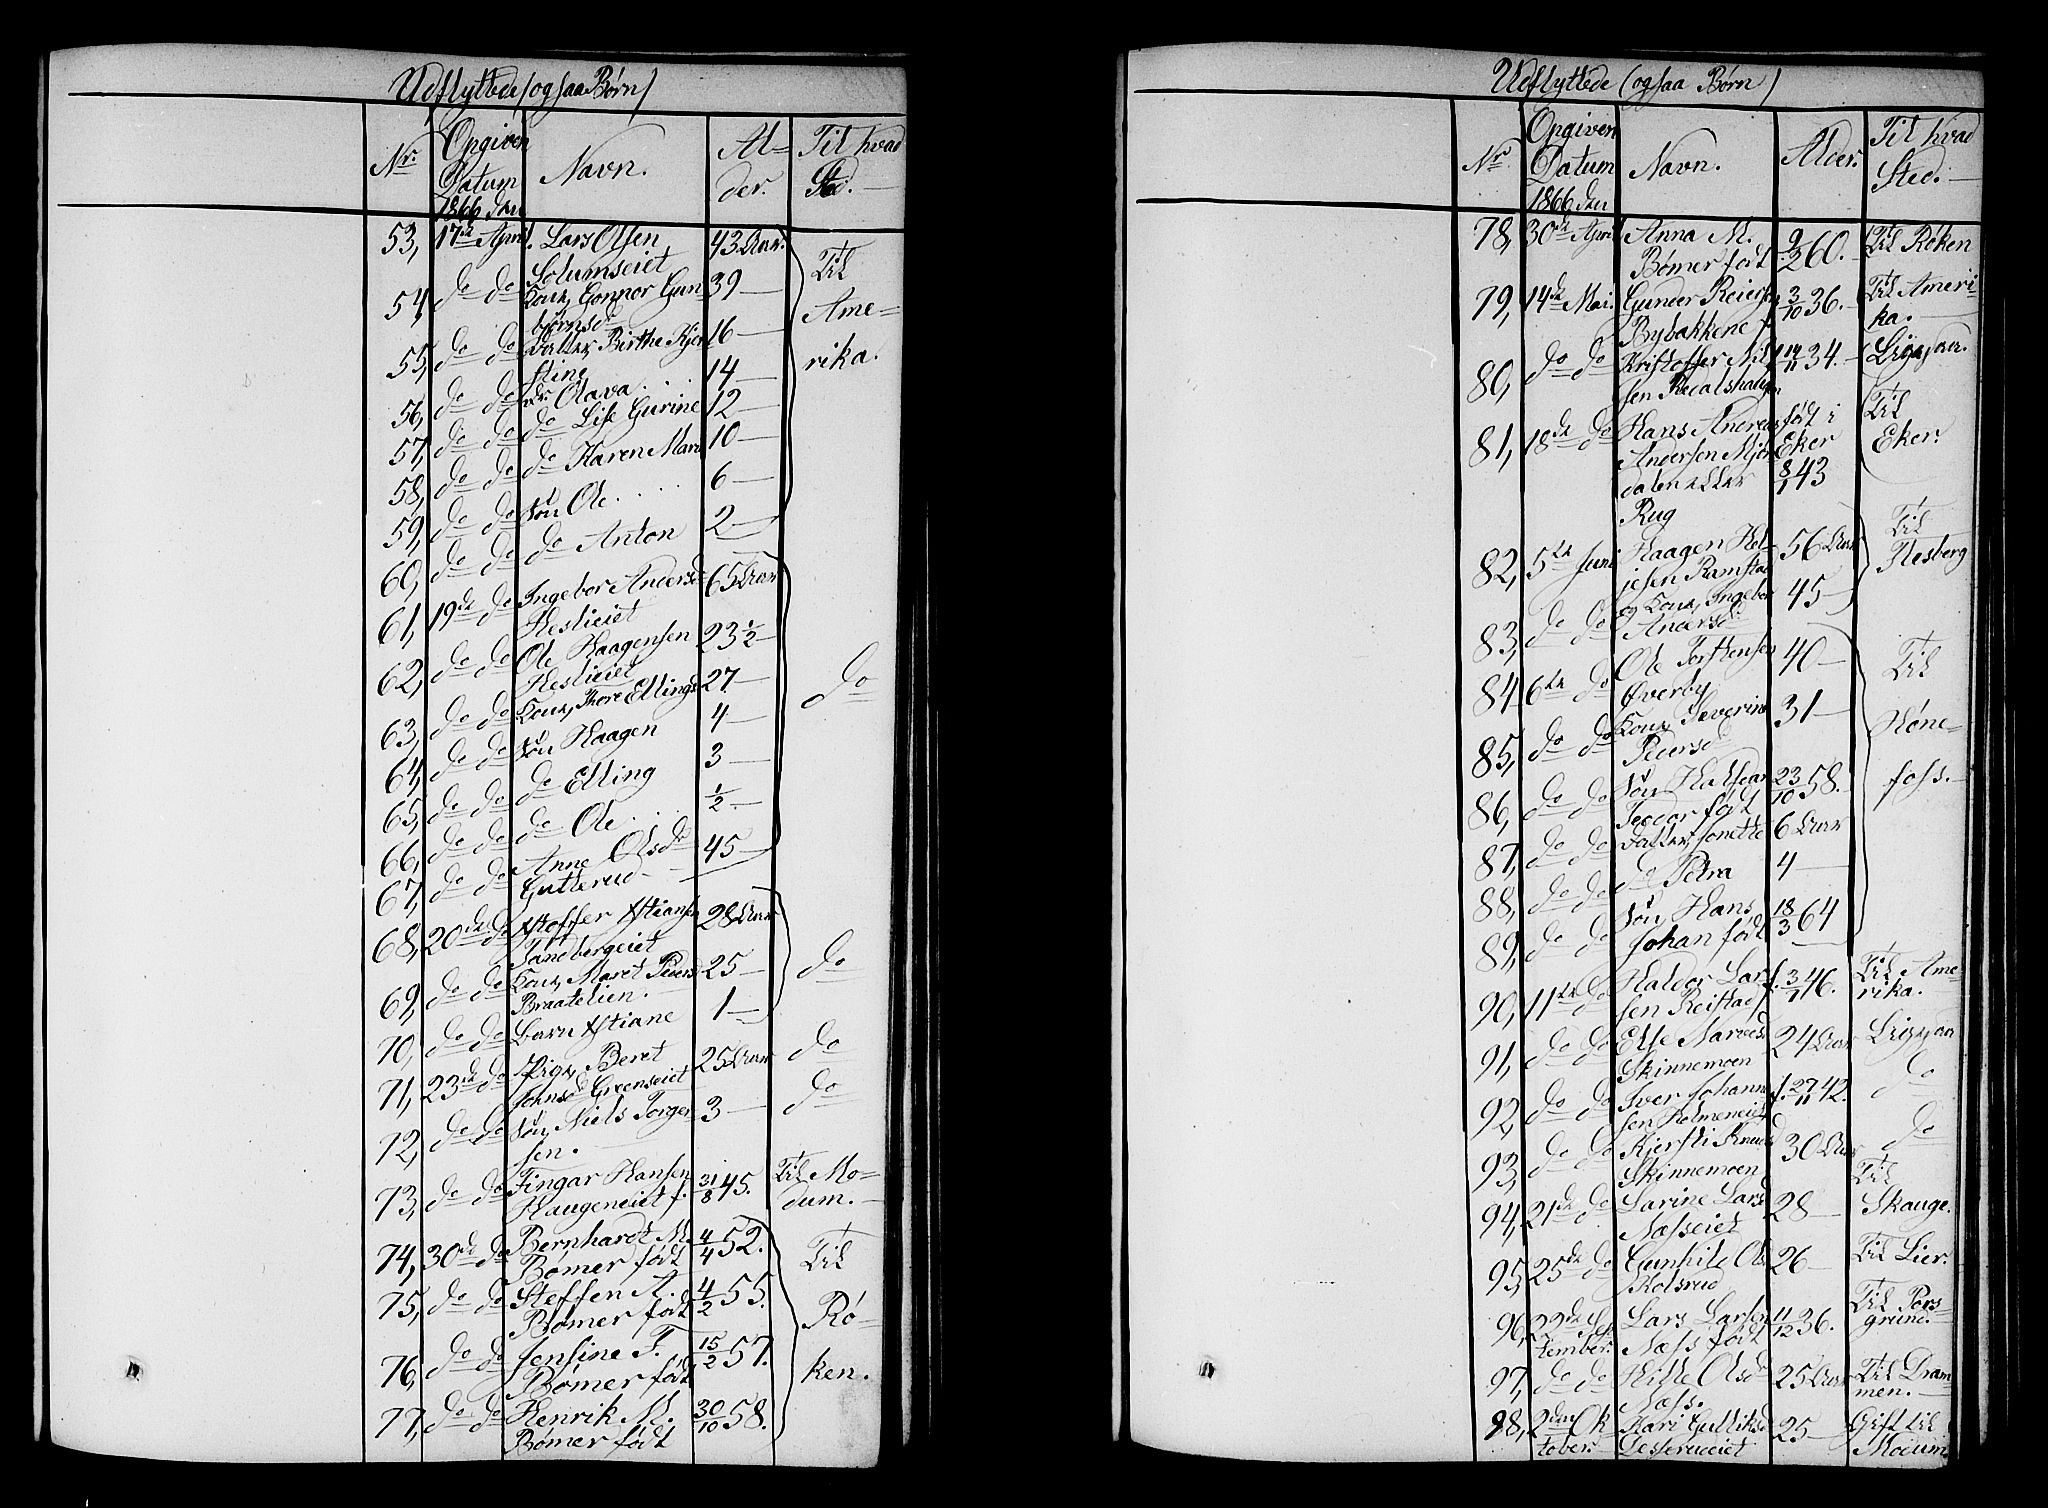 Udflyttede (ogsaa Børn)
Nr. Opgiven Datum 1866 den Navn. Alder. Til hvad Sted.
53, 17de April. Lars Olsen 43 Aar. Til Amerika.
Solumseiet
54, do do Kone, Gonnor Gun 39 —
børnsd
55, do do Datter Birthe Kjer 16 —
stine
56, do do do Olava 14 —
57, do do do Lise Gurine 12 —
58, do do do Karen Mari 10 —
59, do do Søn Ole 6 —
60, do do do Anton 2 —
61, 19de do Ingebor Andersd 65 Aar do
Heslieiet
62, do do Ole Haagensen 23 1/2 —
Heslieiet
63, do do Kone, Thore Ellingsd 27 —
64, do do Søn Haagen 4 —
65, do do do Elling 3 —
66, do do do Ole 1/2 —
67, do do Anne Olsd 45 —
Gutterud
68, 20de do Xstoffer Xstiansen 28 Aar do
Tandbergeiet
69, do do Kone, Maret Peders 25 —
Braatelien.
70, do do Barn Xstiane 1 —
71, 23de do Pige, Beret 25 Aar do
Johnsd Greenseiet
72, do do Søn, Niels Torger 3 — do
sen.
73, do do Fingar Hansen 31/8 45. Til Mo-
Haugeneiet f. dum. —
74, 30de do Bernhardt M. 4/4 52. Til Røken.
Bømer født
75, do do Steffen A. 4/2 55.
Bømer født
76, do do Jensine F. 15/2 57.
Bømer født
77, do do Henrik M. 30/10 58.
Bømer født
Udflyttede (ogsaa Børn)
Nr. Opgiven Datum 1866 den Navn. Alder. Til hvad Sted. —
78, 30de April Anna M. 9/2 60. Til Røken
Bømer født
79, 14de Mai. Gunder Reiersen 3/10 36. Til Ameri-
Bybakkene f. ka.
80, do do Kristoffer Nil 14/11 34. Ligesaa.
sen
81, 18de do Hans Andreas født i Til
Andersen Mjøn Eker Eker.
dalen eller 8/1 43
Rug
82, 5te Juni Haagen Hel- 56 Aar Til Flesberg
jesen Ramstad
83, do do og Kone, Ingebor 45 —
Andersd
84, 6te do Ole Torstensen 40 — Til Hønefoss. —
Øverby
85, do do Kone, Severine 31 —
Pedersd
86, do do Søn, Halfdan 23/10 58.
Teodor født
87, do do Datter, Jonette 6 Aar
88, do do do Petra 4 —
89, do do Søn, Hans 18/3 64
Johan født
90, 11te do Haldor Lar f. 3/1 46. Til Ame-
sen Reistad rika.
91, do do Else Narvesd 24 Aar Ligesaa
Skinnemoen
92, do do Iver Johanne f. 27/11 42. do
sen Holmeneiet
93, do do Kjersti Knudsd 30 Aar do
Skinnemoen
94, 21de do Larine Larsd 28 — Til
Næsseiet Skauge.
95, 25de do Gunhild Ols 26 — Til Lier.
Rolsrud
96, 22de Sep Lars Larsen 11/12 36. Til Pors-
tember. Næss født grund.
97, do do Kisle Olsd 25 Aar Til Dram-
Næss. men. —
98, 2den Ok Kari Gulliksd 25 — Gift til
tober. Modum